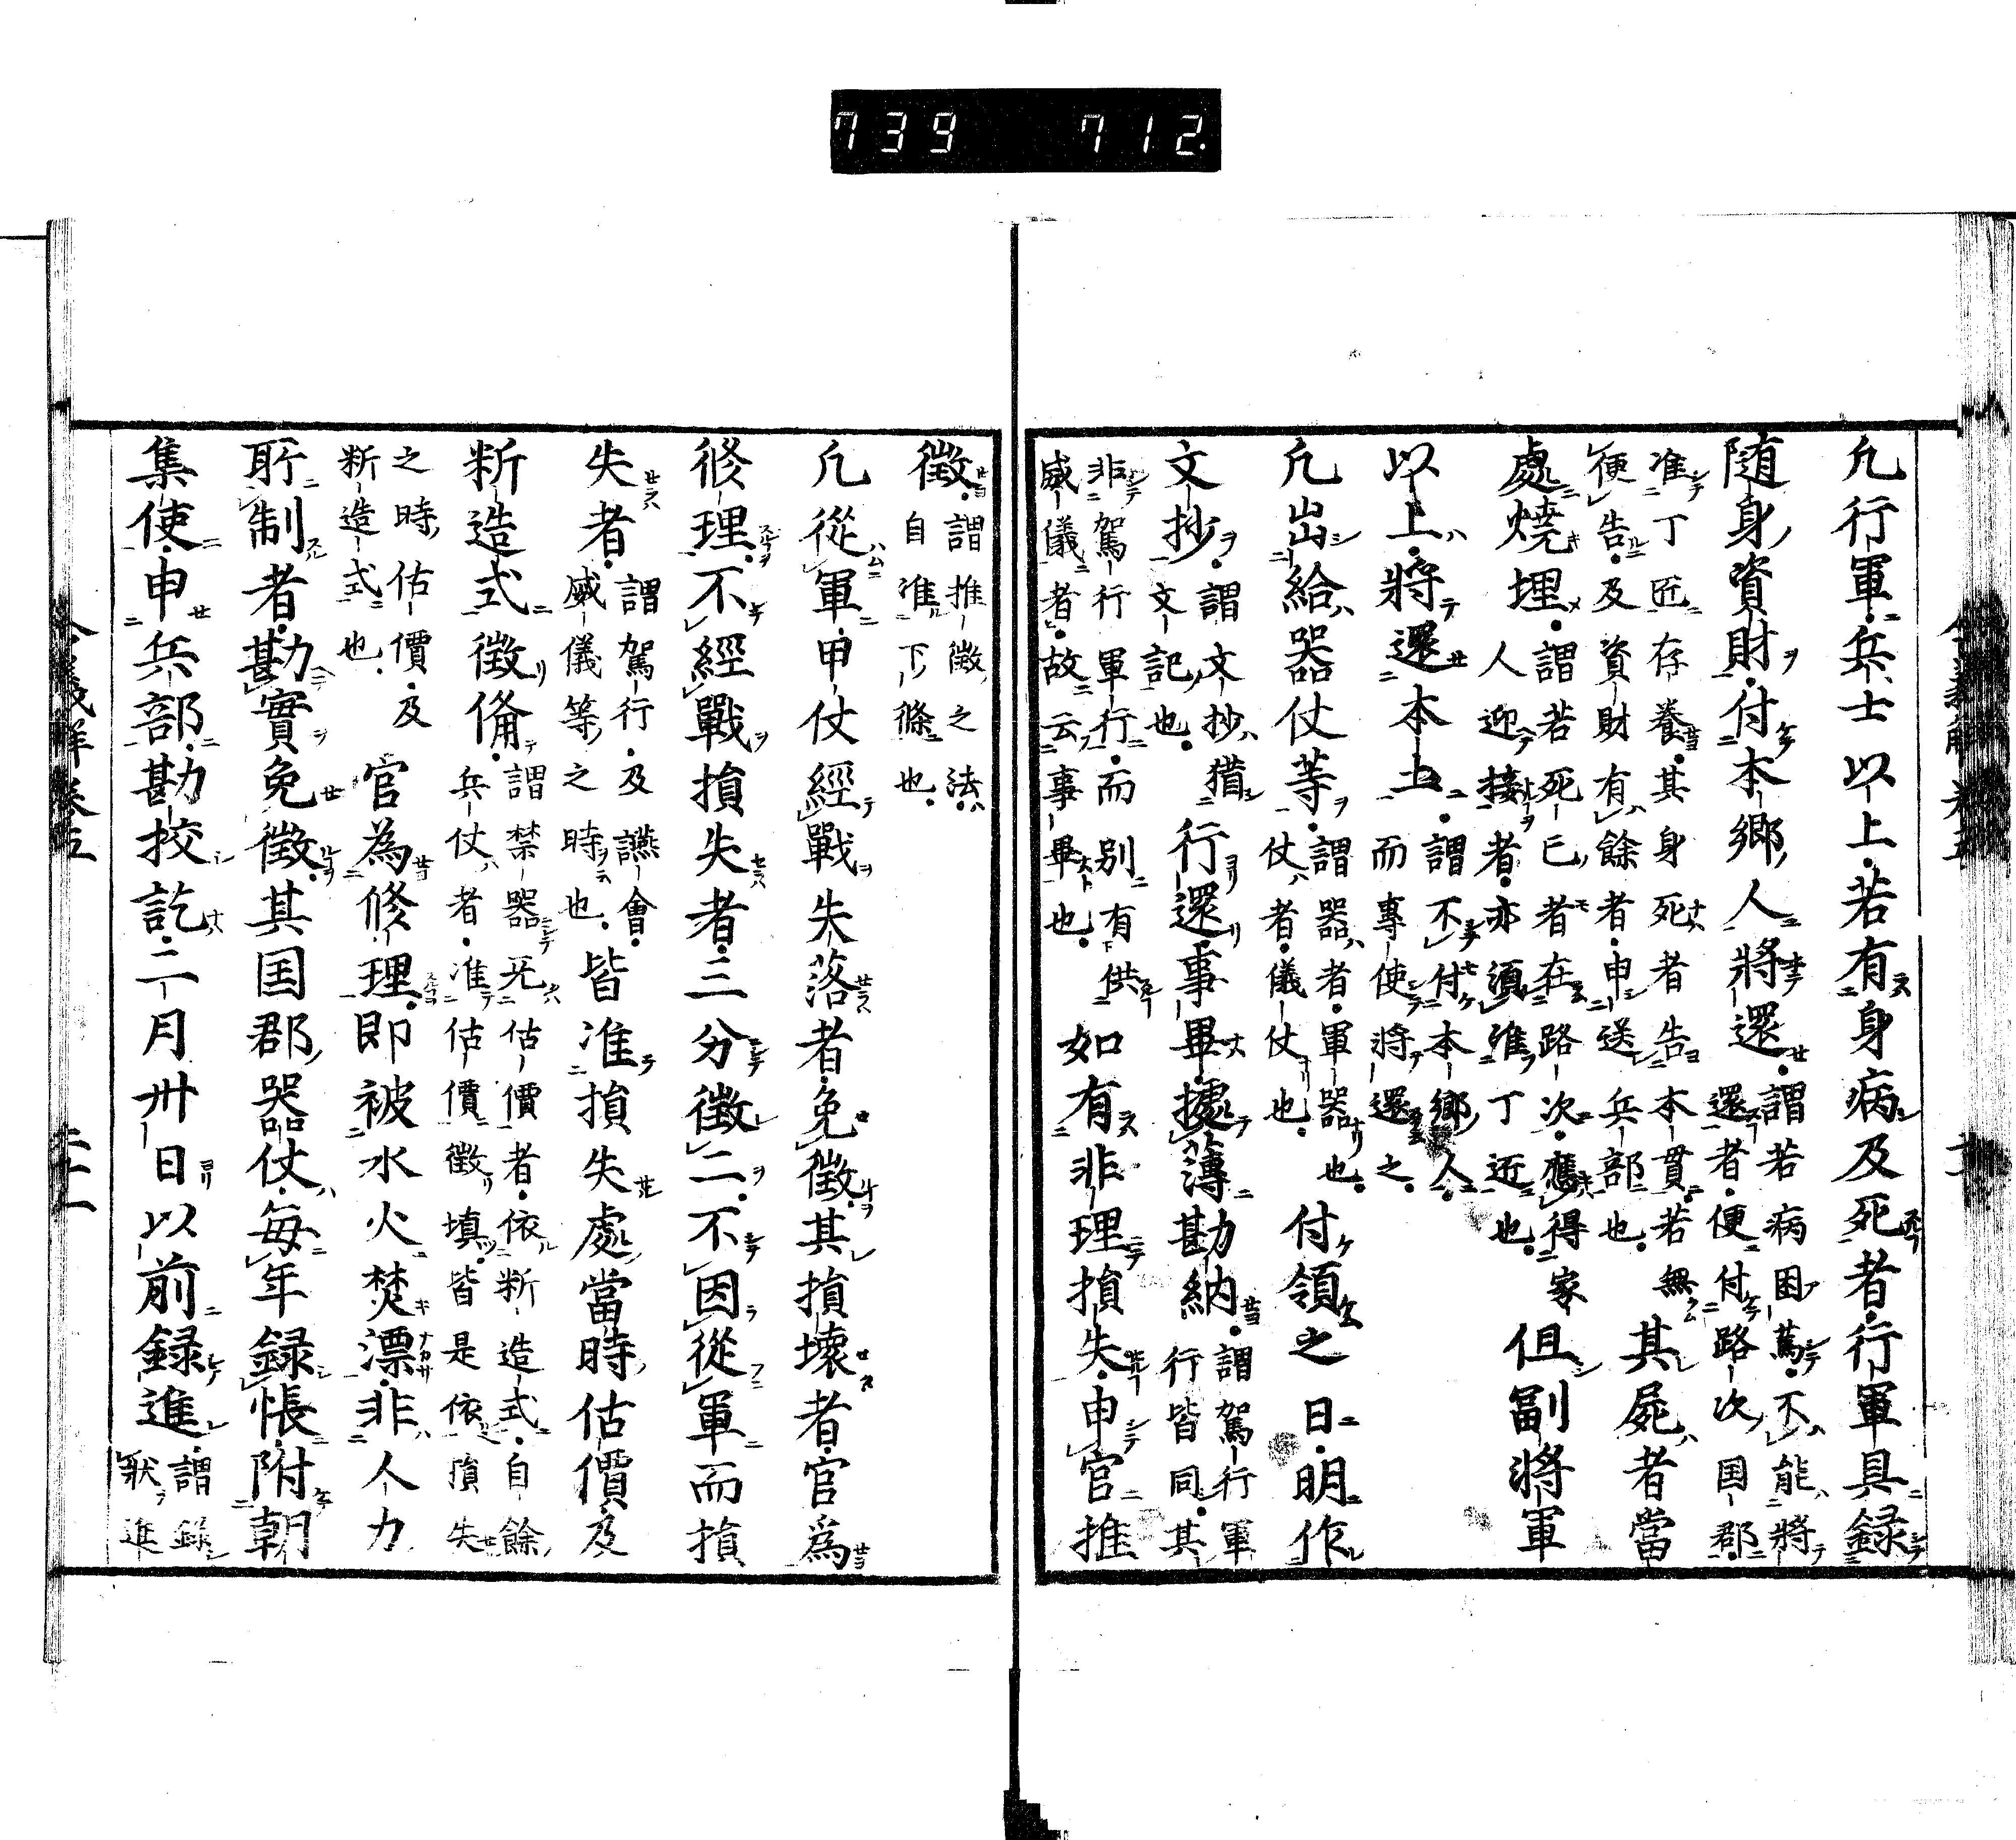 739 712
凢行軍兵士以上若有身病及死者行軍具録
随身資財付本郷人將還謂若病困篤不能將
還者便付路次国郡
其屍者當
准丁匠存養其身死者告本貫若無
便告及資財有餘者申送兵部也
處燒埋謂若死已者在路次應得家
人迎接者亦須准丁近也
但副將軍
以上將還本土謂不付本郷人
而專使將還之
凢出給器仗等謂器者軍器也
仗者儀仗也
付領之日明作
文抄謂文抄猶
文記也
行還事畢據薄勘納謂駕行軍
行皆同其
非駕行軍行而別有供
威儀者故云事畢也
如有非理損失申官推
徵謂推徵之法
自准下條也
凢從軍甲仗經戰失落者免徵其損壞者官爲
修理不經戰損失者三分徵二不因從軍而損
失者謂駕行及讌會
威儀等之時也
皆准損失處當時估價及
新造式徵備謂禁器旡估價者依新造式自餘
兵仗者准估價徵填皆是依損失
之時估價及
新造式也
官為修理即被水火焚漂非人力
所制者勘實免徵其国郡器仗毎年録帳附朝
集使申兵部勘挍訖二月卅日以前録進謂録
狀進